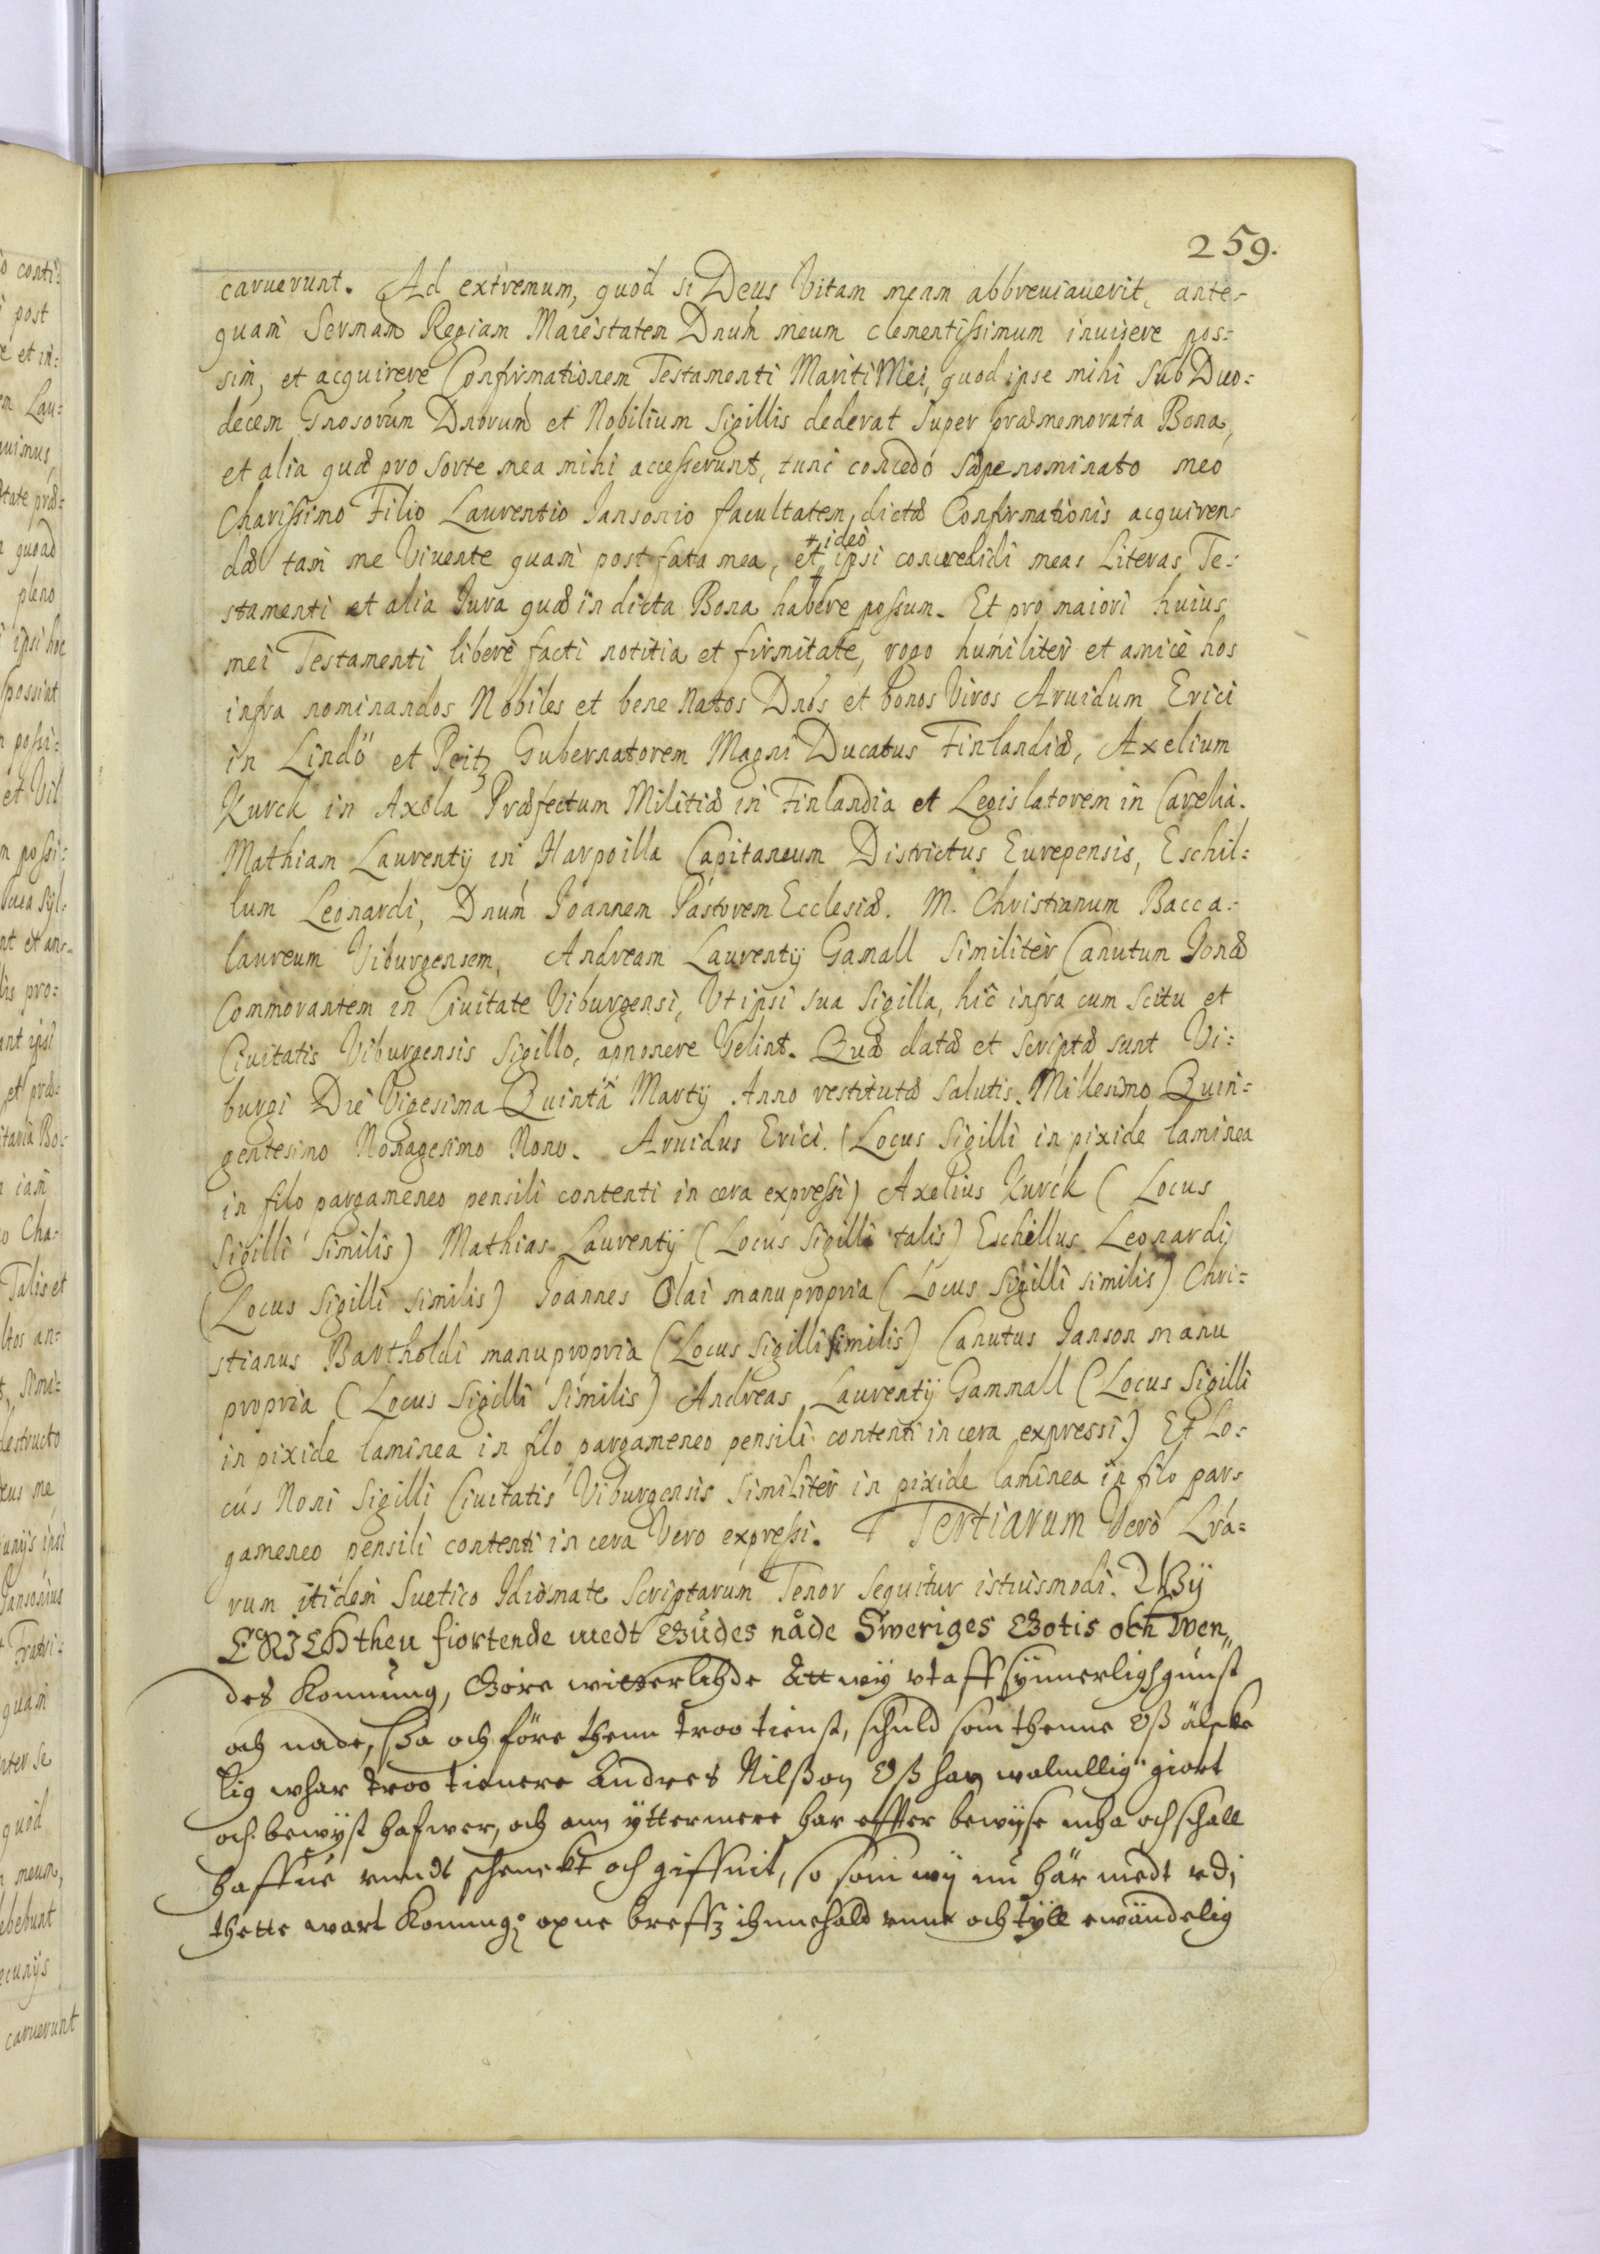 259.
caruerunt. Ad extremum, quod si Deus Vitam meam abbreuiauerit, ante-
quam Sermam Regiam Maiestatem Dnum meum clementissimum inuisere pos=
sim, et acquirere Confirmationem Testamenti Mariti Mei, quod ipse mihi sub Duo=
decem Gnosorum Dnorum et Nobilium Sigillis dederat super præmemorata Bona,
et alia quæ pro sorte mea mihi accesserunt, tunc concedo sæpe nominato meo
Charissimo Filio Laurentio Jansonio facultatem, dictæ Confirmationis acquiren=
dæ tam me Viuente quam post fata mea, et ideò ipsi concredidi meas Literas Te=
stamenti et alia Jura quæ in dicta Bona habere possum. Et pro maiori huius
mei Testamenti liberè facti notitia et firmitate, rogo humiliter et amicè hos
infra nominandos Nobiles et bene Natos Dnos et bonos Viros Aruidum Erici
in Lindö et Peitz Gubernatorem Magni Ducatus Finlandiæ, Axelium
Kurck in Axela Præfectum Militiæ in Finlandia et Legislatorem in Carelia.
Mathiam Laurentij in Harpoilla Capitaneum Districtus Eurepensis, Eschil=
lum Leonardi, Dnum Joannem Pastorem Ecclesiæ. M. Christianum Bacca=
laureum Viburgensem, Andream Laurentij Gamall similiter Canutum Jonæ
Commorantem in Ciuitate Viburgensi, Vt ipsi sua Sigilla, hic infra cum scitu et
Ciuitatis Viburgensis Sigillo, apponere Velint. Quæ datæ et scriptæ sunt Vi=
burgi Die Vigesima Quintâ Martij Anno restitutæ salutis. Millesimo Quin=
gentesimo Nonagesimo Nono. Aruidus Erici. (Locus Sigilli in pixide laminea
in filo pargameneo pensili contenti in cera expressi) Axelius Kurck (Locus
Sigilli similis) Mathias Laurentij (Locus Sigilli talis) Eschillus Leonardi
(Locus Sigilli similis) Joannes Olai manupropria (Locus Sigilli similis) Chri=
stianus Bartholdi manupropria (Locus Sigilli similis) Canutus Janson manu
propria (Locus Sigilli similis) Andreas Laurentij Gammall (Locus Sigilli
in pixide laminea in filo pargameneo pensili contenti in cera expressi.) Et Lo=
cus Noni Sigilli Ciuitatis Viburgensis similiter in pixide laminea in filo par=
gameneo pensili contenti in cera Vero expressi. Tertiarum Verò Lra=
rum itidem Suetico Idiomate Scriptarum Tenor sequitur istiusmodi. Wÿ
ERICH then fiortende medt Gudes nåde Sweriges Gotis och Wen„
des Konnung, Göre witterlighde Att wÿ vtaff sÿnnerligh gunst
och nade, och före thenn troo tienst, schuld som thenne Oß älske
lig whar troo tienere Andres Nilßon Oß haer giort
och bewÿst hafwer, och ann ÿttermere har effter bewÿse och schall
haffue vnndt schenckt och giffuit, so som wÿ nu här medt vdj
thette wart Konungz opne breff vnne och tÿll ewändelig